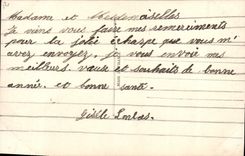 Madame et Mesdemoiselles
Je viens vous faire mes remerciments
pour la jolie écharpe que vous m'
avez envoyez, je vous envoie mes
meilleurs vœux et souhaits de bonne
année. et bonne santé.
Gisèle